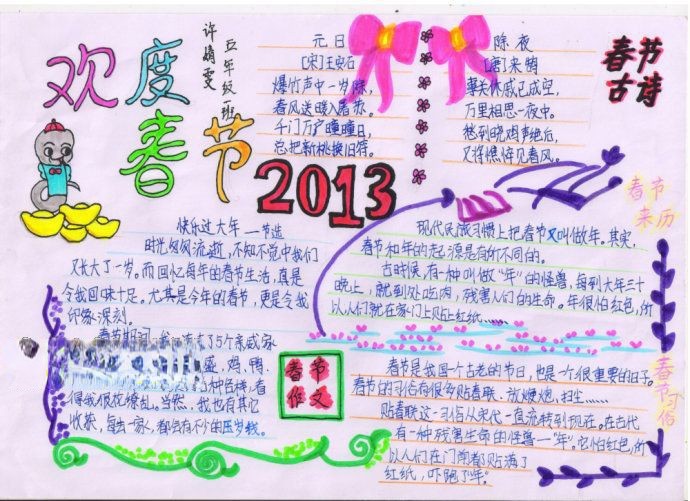 欢度
春节
许婧雯
五年级一班
元日
[宋]王安石
爆竹声中一岁除，
春风送暖入屠苏。
千门万户曈曈日，
总把新桃换旧符。
除夜
[唐]来鹄
事关休戚已成空，
万里相思一夜中。
愁到晓鸡声绝后，
又将憔悴见春风。
春节
古诗
2013
快乐过大年 — 节选
时光匆匆流逝，不知不觉中我们
又长大了一岁。而回忆每年的春节生活，真是
令我回味十足。尤其是今年的春节，更是令我
印象深刻。
春节期间
5个亲戚家
盛，鸡、鸭、
种色烤，看
得我眼花缭乱。当然，我也有其它
收获，每去一家，都会有不少的压岁钱。
春节
作文
春节
来历
现代民俗习惯上把春节又叫做年。其实，
春节和年的起源是有所不同的。
古时候，有一种叫做“年”的怪兽，每到大年三十
晚上，就到处吃肉，残害人们的生命。年很怕红色，所
以人们就在家们上贴红纸……
春节
习俗
春节是我国一个古老的节日，也是一个很重要的日子。
春节的习俗有很多贴春联、放爆炮、扫尘……
贴春联这一习俗从宋代一直流转到现在。在古代
有一种残害生命的怪兽—“年”。它怕红色，所
以人们在门前都贴满了
红纸，吓跑了“年”。